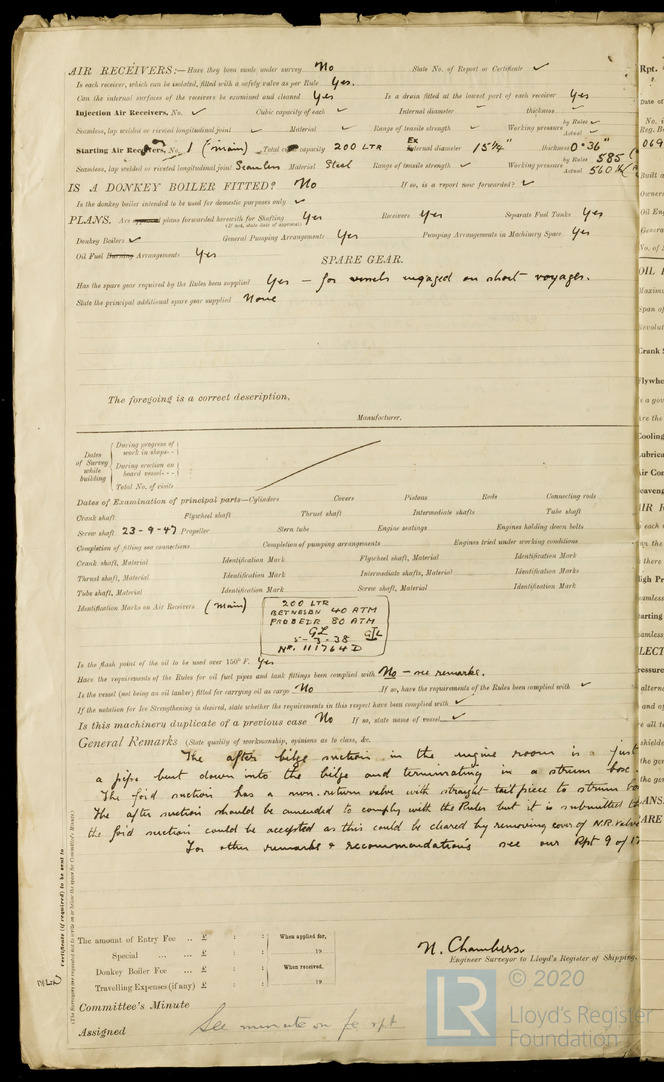 AIR RECEIVERS:—Have they been made under survey No State No. of Report or Certificate ✓
Is each receiver, which can be isolated, fitted with a safety valve as per Rule Yes.
Can the internal surfaces of the receivers be examined and cleaned Yes Is a drain fitted at the lowest part of each receiver Yes
Injection Air Receivers, No. ✓ Cubic capacity of each ✓ Internal diameter ✓ thickness ✓
Seamless, lap welded or riveted longitudinal joint ✓ Material ✓ Range of tensile strength ✓ Working pressure by Rules ✓ Actual ✓
Starting Air Receivers, No. 1 (main) Total capacity 200 LTR External diameter 15¼" thickness 0.36"
Seamless, lap welded or riveted longitudinal joint Seamless Material Steel Range of tensile strength ✓ Working pressure by Rules 585 Actual 560
IS A DONKEY BOILER FITTED? No If so, is a report now forwarded? ✓
Is the donkey boiler intended to be used for domestic purposes only ✓
PLANS. Are approved plans forwarded herewith for Shafting Yes Receivers Yes Separate Fuel Tanks Yes
(If not, state date of approval)
Donkey Boilers ✓ General Pumping Arrangements Yes Pumping Arrangements in Machinery Space Yes
Oil Fuel Burning Arrangements Yes
SPARE GEAR.
Has the spare gear required by the Rules been supplied Yes – for vessels engaged on short voyages.
State the principal additional spare gear supplied None
The foregoing is a correct description,
Manufacturer.
Dates of Survey while building
During progress of work in shops - -
During erection on board vessel - - -
Total No. of visits
Dates of Examination of principal parts—Cylinders Covers Pistons Rods Connecting rods
Crank shaft Flywheel shaft Thrust shaft Intermediate shafts Tube shaft
Screw shaft 23-9-47 Propeller Stern tube Engine seatings Engines holding down bolts
Completion of fitting sea connections Completion of pumping arrangements Engines tried under working conditions
Crank shaft, Material Identification Mark Flywheel shaft, Material Identification Mark
Thrust shaft, Material Identification Mark Intermediate shafts, Material Identification Marks
Tube shaft, Material Identification Mark Screw shaft, Material Identification Mark
Identification Marks on Air Receivers (main)
200 LTR
BETRIEBN 40 ATM
PROBEDR 80 ATM
GL
5-3-38 GL
Nº. 111764 D
Is the flash point of the oil to be used over 150° F. Yes
Have the requirements of the Rules for oil fuel pipes and tank fittings been complied with No – see remarks.
Is the vessel (not being an oil tanker) fitted for carrying oil as cargo No If so, have the requirements of the Rules been complied with ✓
If the notation for Ice Strengthening is desired, state whether the requirements in this respect have been complied with ✓
Is this machinery duplicate of a previous case No If so, state name of vessel ✓
General Remarks (State quality of workmanship, opinions as to class, &c.
The after bilge suction in the engine room is just
a pipe bent down into the bilge and terminating in a strum box.
The for'd suction has a non-return valve with straight tail piece to strum box
The after suction should be amended to comply with the Rules but it is submitted
the for'd suction could be accepted as this could be cleared by removing cover of N.R. valve
For other remarks & recommendations see our Rpt 9 of
The amount of Entry Fee .. £ : : When applied for,
Special ... ... £ : : 19
Donkey Boiler Fee ... £ : : When received,
Travelling Expenses (if any) £ : : 19
N. Chambers.
Engineer Surveyor to Lloyd's Register of Shipping.
Committee's Minute
Assigned See minute on fe rpt
(The Surveyors are requested not to write on or below the space for Committee's Minute.)
certificate (if required) to be sent to
LR © 2020
Lloyd's Register
Foundation